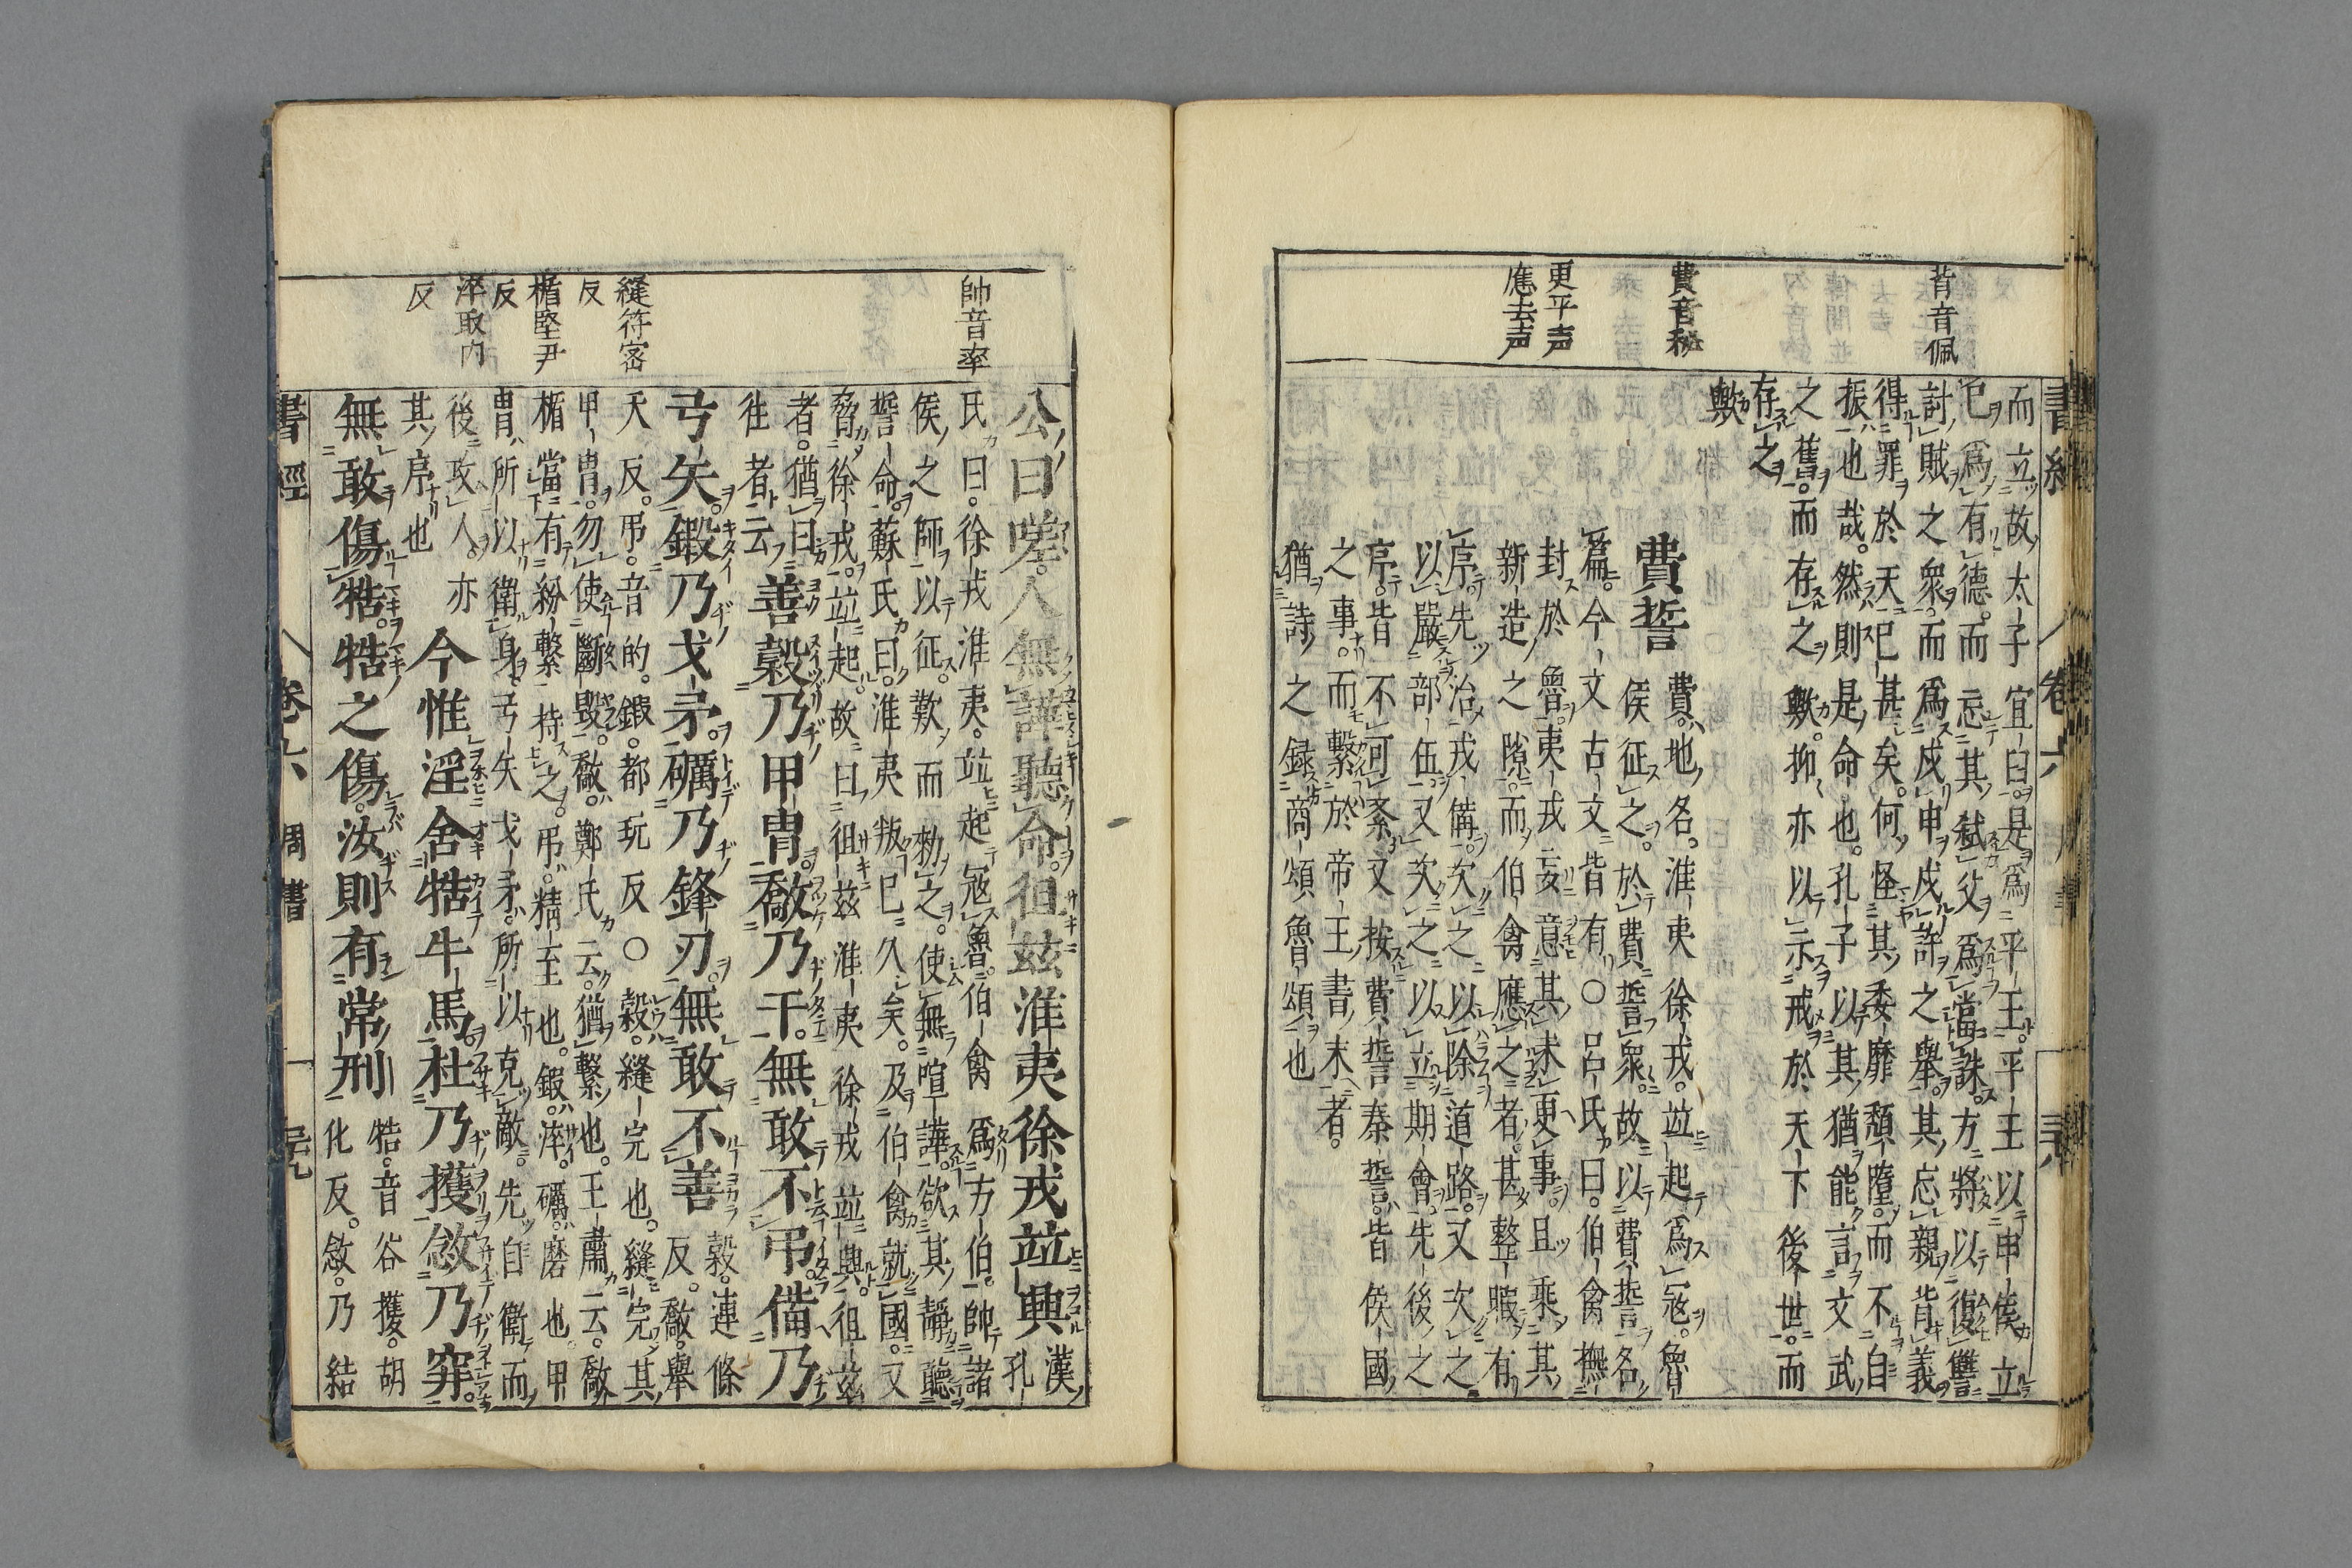 背音佩
費音秘
更平声
應去声
而立故太子宜臼是為平王平王以申侯立
己為有德而忘其弑父為當誅方將以復讐
討賊之衆而為戍申戍許之舉其忘親背義
得罪於天已甚矣何怪其委靡頽墮而不自
振也哉然則是命也孔子以其猶能言文武
之舊而存之歟抑亦以示戒於天下後世而
存之
歟
費誓
費地名淮夷徐戎並起為寇魯
侯征之於費誓衆故以費誓名
篇今文古文皆有○呂氏曰伯禽撫
封於魯夷戎妄意其未更事且乗其
新造之隙而伯禽應之者甚整暇有
序先治戎備次之以除道路又次之
以嚴部伍又次之以立期會先後之
序皆不可紊又按費誓秦誓皆侯國
之事而繫於帝王書末者
猶詩之録商頌魯頌也
書經 卷六 周書
帥音率
縫符容
反
楯竪尹
反
淬取内
反
公曰嗟人無譁聽命徂茲淮夷徐戎並興
漢孔
氏曰徐戎淮夷並起寇魯伯禽為方伯帥諸
侯之師以征歎而勑之使無喧譁欲其靜聽
誓命蘇氏曰淮夷叛已久矣及伯禽就國又
脅徐戎並起故曰徂茲淮夷徐戎並興徂茲
者猶曰
往者云
善敹乃甲冑敿乃干無敢不弔備乃
弓矢鍛乃戈矛礪乃鋒刃無敢不善
敹連條
反敿舉
夭反弔音的鍛都玩反○敹縫完也縫完其
甲冑勿使斷毀敿鄭氏云猶繫也王肅云敿
楯當有紛繫持之弔精至也鍛淬礪磨也甲
冑所以衛身弓矢戈矛所以克敵先自衛而
後攻人亦
其序也
今惟淫舍牿牛馬杜乃擭敜乃穽
無敢傷牿牿之傷汝則有常刑
牿音谷擭胡
化反敜乃結
書經 卷六 周書